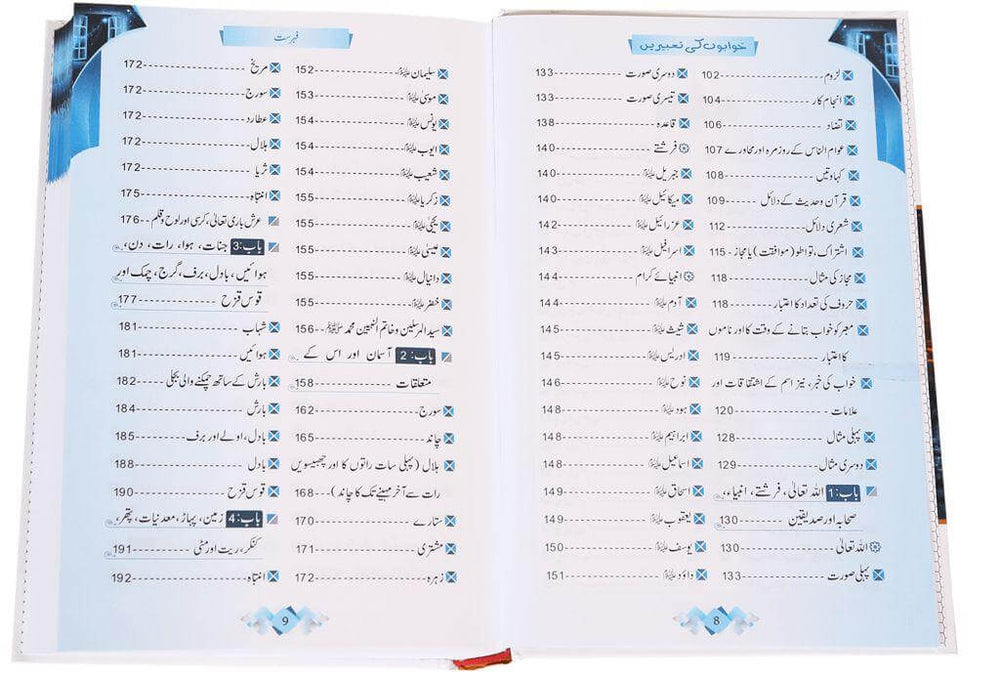 خوابوں کی تعبیریں
لزوم 102
انجام کار 104
تضاد 106
عوام الناس کے روزمرہ اور محاورے 107
کہاوتیں 108
قرآن وحدیث کے دلائل 109
شعری دلائل 112
اشتراک، تواطو (موافقت) یا مجاز 115
مجاز کی مثال 118
حروف کی تعداد کا اعتبار 118
معبر کو خواب بتانے کے وقت کا اور ناموں
کا اعتبار 119
خواب کی خبر، نیز اسم کے اشتقاقات اور
علامات 120
پہلی مثال 128
دوسری مثال 129
باب:1 اللہ تعالیٰ، فرشتے، انبیاء،
صحابہ اور صدیقین 130
اللہ تعالیٰ 130
پہلی صورت 133
دوسری صورت 133
تیسری صورت 133
قاعدہ 138
فرشتے 140
جبریل علیہ السلام 140
میکائیل علیہ السلام 140
عزرائیل علیہ السلام 142
اسرافیل علیہ السلام 143
انبیائے کرام 144
آدم علیہ السلام 144
شیث علیہ السلام 145
ادریس علیہ السلام 145
نوح علیہ السلام 146
ہود علیہ السلام 148
ابراہیم علیہ السلام 148
اسماعیل علیہ السلام 148
اسحاق علیہ السلام 149
یعقوب علیہ السلام 149
یوسف علیہ السلام 150
داؤد علیہ السلام 151
8
فہرست
سلیمان علیہ السلام 152
موسیٰ علیہ السلام 153
یونس علیہ السلام 154
ایوب علیہ السلام 154
شعیب علیہ السلام 154
زکریا علیہ السلام 155
یحییٰ علیہ السلام 155
عیسیٰ علیہ السلام 155
دانیال علیہ السلام 155
خضر علیہ السلام 155
سید المرسلین وخاتم النبیین محمد ﷺ 156
باب:2 آسمان اور اس کے
متعلقات 158
سورج 162
چاند 165
ہلال (پہلی سات راتوں کا اور چھبیسویں
رات سے آخر مہینے تک کا چاند) 168
ستارے 170
مشتری 171
زہرہ 172
مریخ 172
سورج 172
عطارد 172
ہلال 172
ثریا 172
انتباہ 175
عرش باری تعالیٰ، کرسی اور لوح وقلم 176
باب:3 جنات، ہوا، رات، دن،
ہوائیں، بادل، برف، گرج، چمک اور
قوس قزح 177
شہاب 181
ہوائیں 181
بارش کے ساتھ چمکنے والی بجلی 182
بارش 184
بادل، اولے اور برف 185
بادل 188
قوس قزح 190
باب:4 زمین، پہاڑ، معدنیات، پتھر،
کنکر، ریت اور مٹی 191
انتباہ 192
9